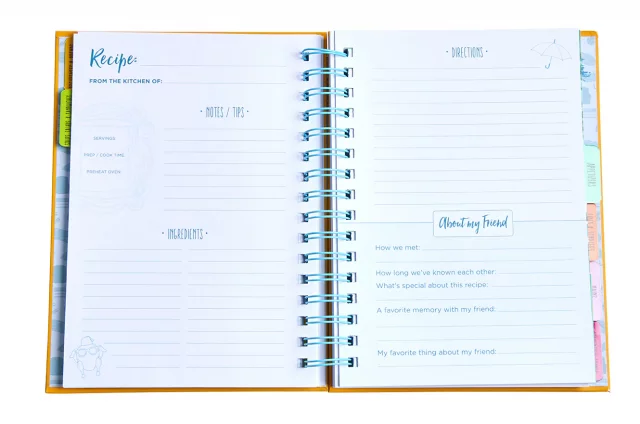 Recipe:
FROM THE KITCHEN OF:
· NOTES / TIPS ·
SERVINGS
PREP / COOK TIME
PREHEAT OVEN
· INGREDIENTS ·
· DIRECTIONS ·
About my Friend
How we met:
How long we've known each other:
What's special about this recipe:
A favorite memory with my friend:
My favorite thing about my friend: